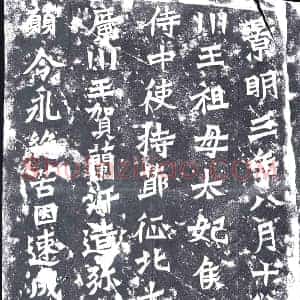 景明三年八月十
川王祖母太妃侯
侍中使持節征北大
廣川王賀蘭汗造弥
願令永絶苦因速成